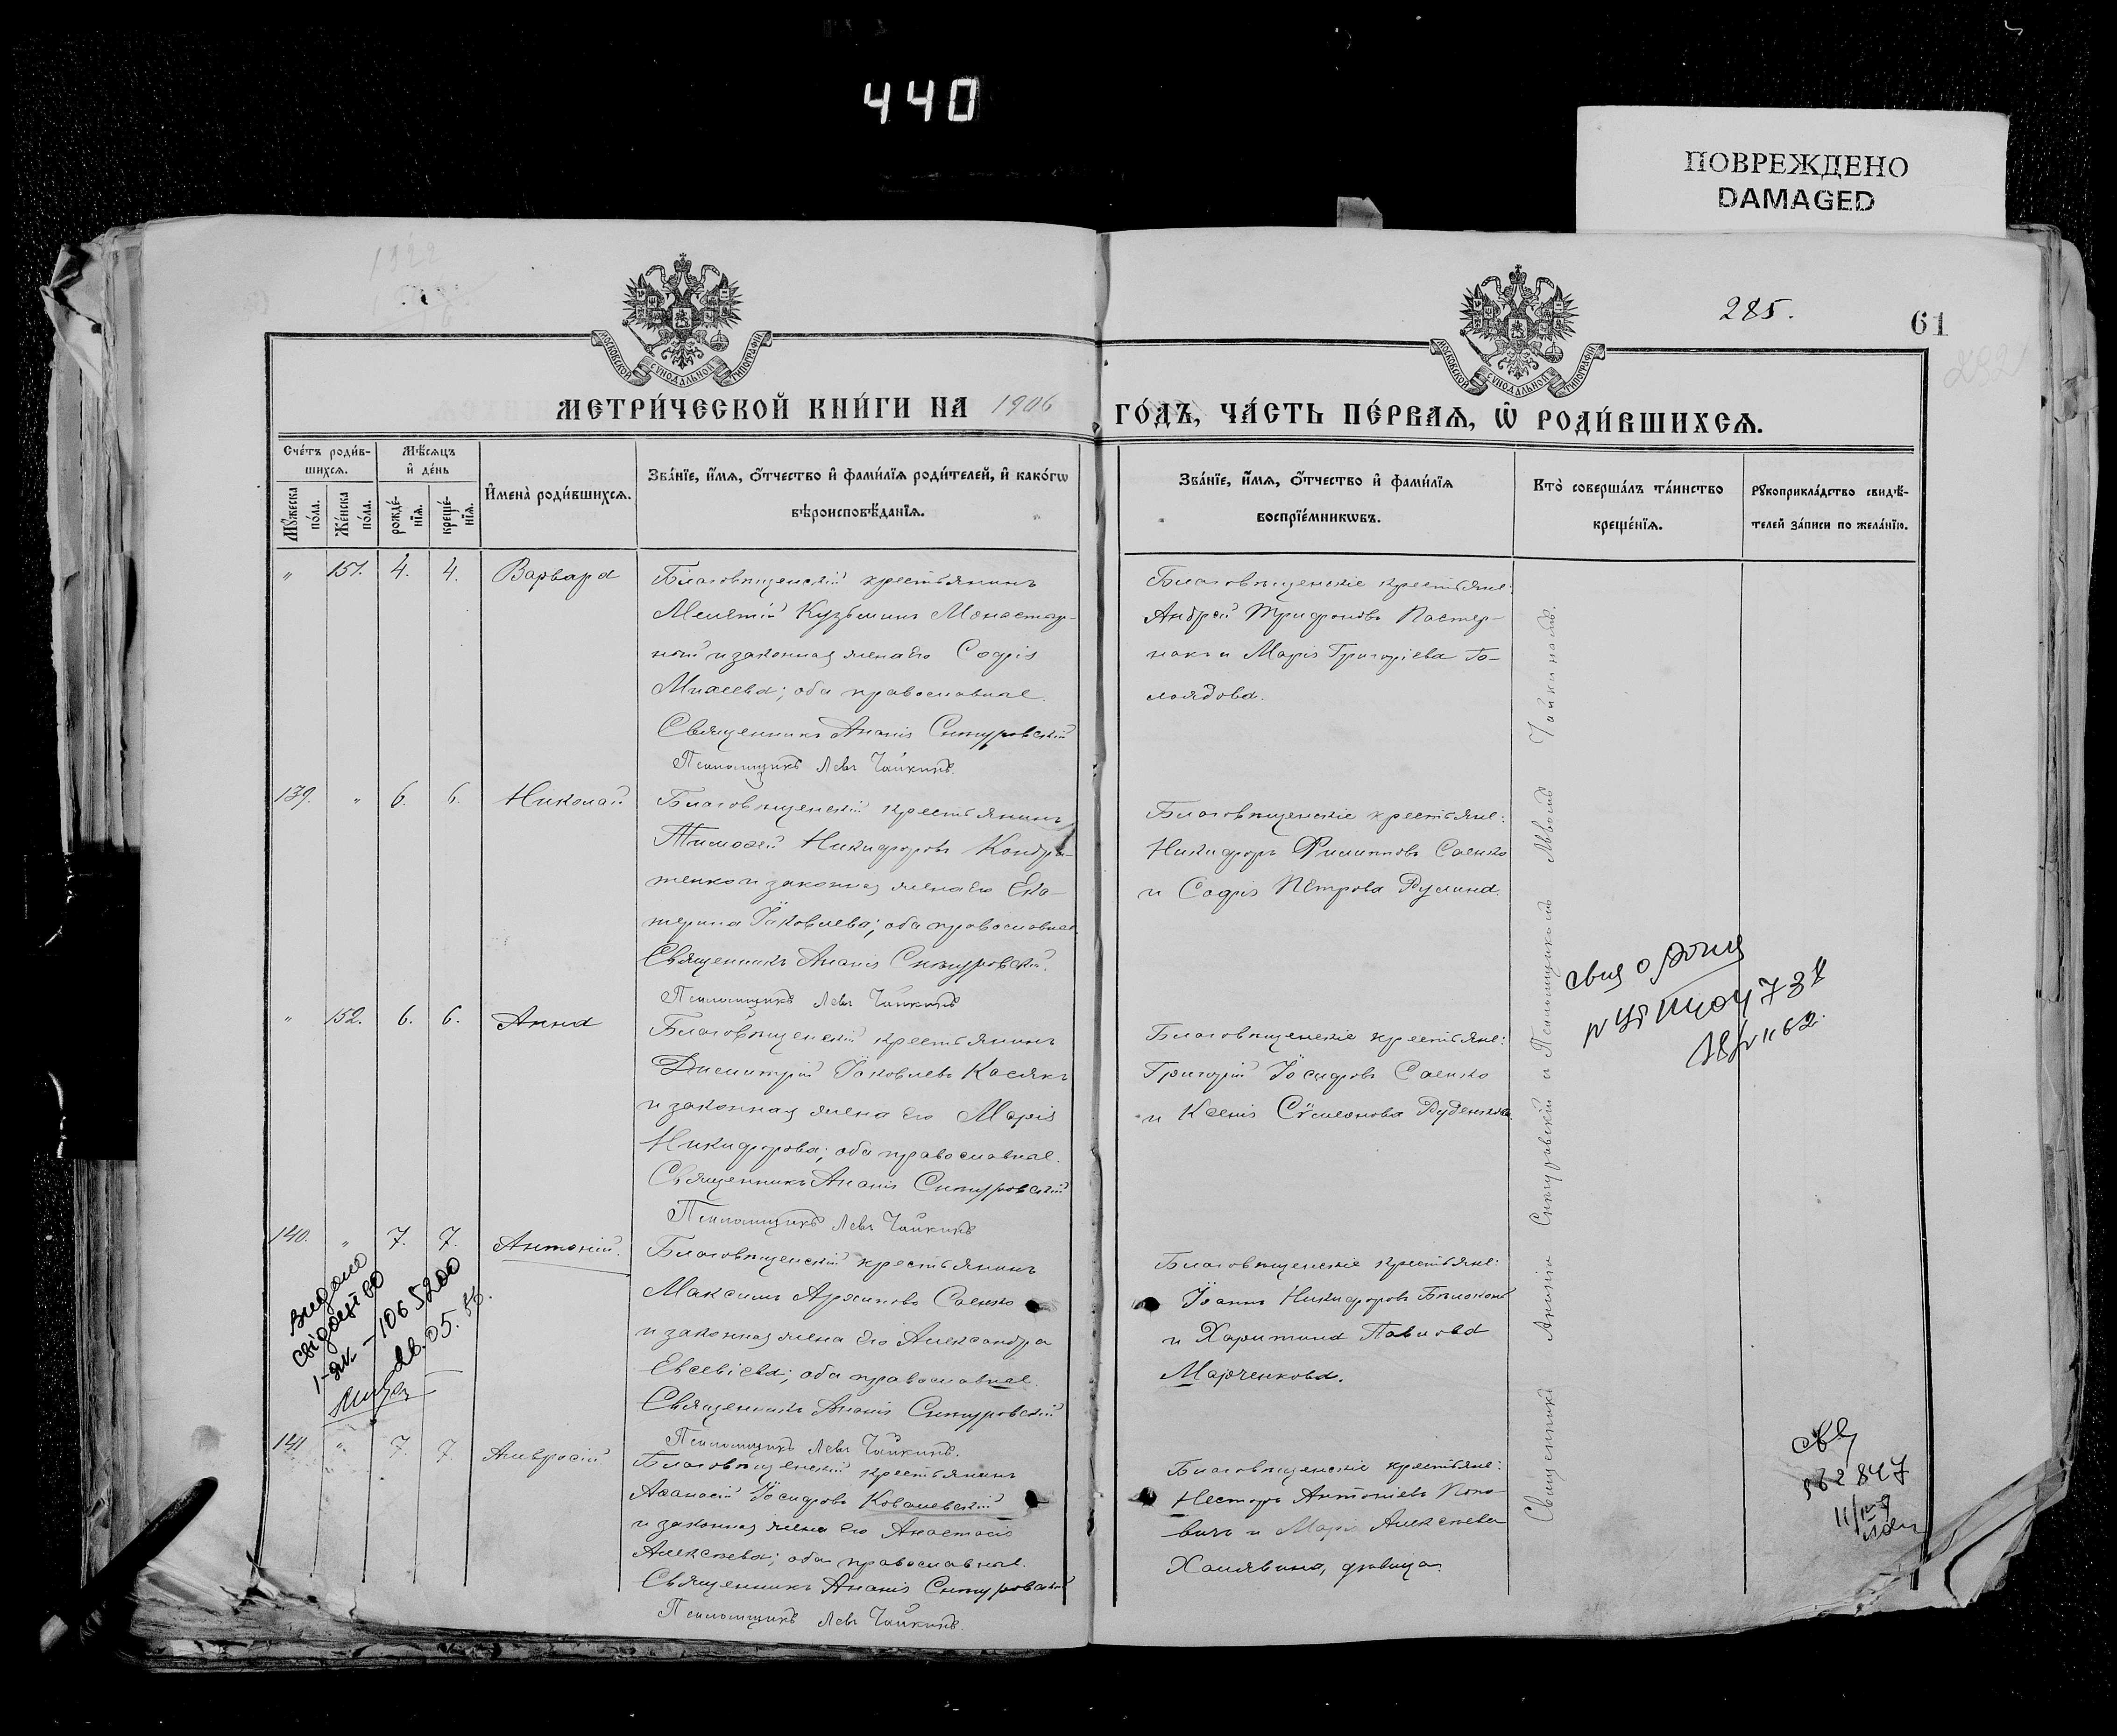 440
ПОВРЕЖДЕНО
DAMAGED
285.
61
МОСКОВСКОЙ СУНОДАЛЬНОЙ ТИПОГРАФІИ
МОСКОВСКОЙ СУНОДАЛЬНОЙ ТИПОГРАФІИ
МЕТРИ́ЧЕСКОЙ КНИ́ГИ НА 1906 ГО́ДЪ, ЧА́СТЬ ПЕ́РВАѦ, Ѡ҆ РОДИ́ВШИХСѦ.
Сче́тъ роди́в-
шихсѧ.
Мꙋ́жеска по́ла.
Же́нска по́ла.
Мѣ́сѧцъ
и҆ де́нь
рожде́-
нїѧ.
креще́-
нїѧ.
И҆мена̀ роди́вшихсѧ.
Зва́нїе, и҆́мѧ, ѻ҆́тчество и҆ фами́лїѧ роди́телей, и҆ како́гѡ
вѣроисповѣ́данїѧ.
Зва́нїе, и҆́мѧ, ѻ҆́тчество и҆ фами́лїѧ
воспрїе́мникѡвъ.
Кто̀ соверша́лъ та́инство
креще́нїѧ.
Рꙋкоприкла́дство свидѣ́-
телей за́писи по жела́нїю.
" 151. 4. 4. Варвара
Благовѣщенскій крестьянинъ
Мелетій Кузьминъ Монастыр-
ный и законная жена его Софія
Михеева; оба православные.
Священникъ Ананія Снтуровскій
Псаломщикъ Левъ Чайкинъ.
Благовѣщенскіе крестьяне:
Андрей Трифоновъ Пастер-
накъ и Марія Григоріева Го-
лоядова.
139. " 6. 6. Николай
Благовѣщенскій крестьянинъ
Тимоѳей Никифоровъ Кондра-
тенко и законная жена его Ека-
терина Іаковлева; оба православные
Священникъ Ананія Снтуровскій.
Псаломщикъ Левъ Чайкинъ
Благовѣщенскіе крестьяне:
Никифоръ Филипповъ Саенко
и Софія Петрова Румина.
" 152. 6. 6. Анна
Благовѣщенскій крестьянинъ
Димитрій Іаковлевъ Касякъ
и законная жена его Марія
Никифорова; оба православные.
Священникъ Ананія Снтуровскій
Псаломщикъ Левъ Чайкинъ
Благовѣщенскіе крестьяне:
Григорій Іосифовъ Саенко
и Ксенія Сѵмеонова Руденкова.
140. " 7. 7. Антоній.
Благовѣщенскій крестьянинъ
Максимъ Архиповъ Саенко
и законная жена его Александра
Евсевіева; оба православные.
Священникъ Ананія Снтуровскій
Псаломщикъ Левъ Чайкинъ.
Благовѣщенскіе крестьяне:
Іоаннъ Никифоровъ Бѣлоконь
и Харитина Павлова
Марченкова.
видано
свідоцтво
1065200
26.05.
141 " 7. 7. Амвросій
Благовѣщенскій крестьянинъ
Аѳанасій Іосифовъ Ковалевскій
и законная жена его Анастасія
Алексѣева; оба православные.
Священникъ Ананія Снтуровскій
Псаломщикъ Левъ Чайкинъ.
Благовѣщенскіе крестьяне:
Несторъ Антоніевъ Попо-
вичъ и Марія Алексѣева
Халявина, дѣвица.
Священникъ Ананія Снтуровскій и Псаломщикъ Левъ Чайкинъ.
562847